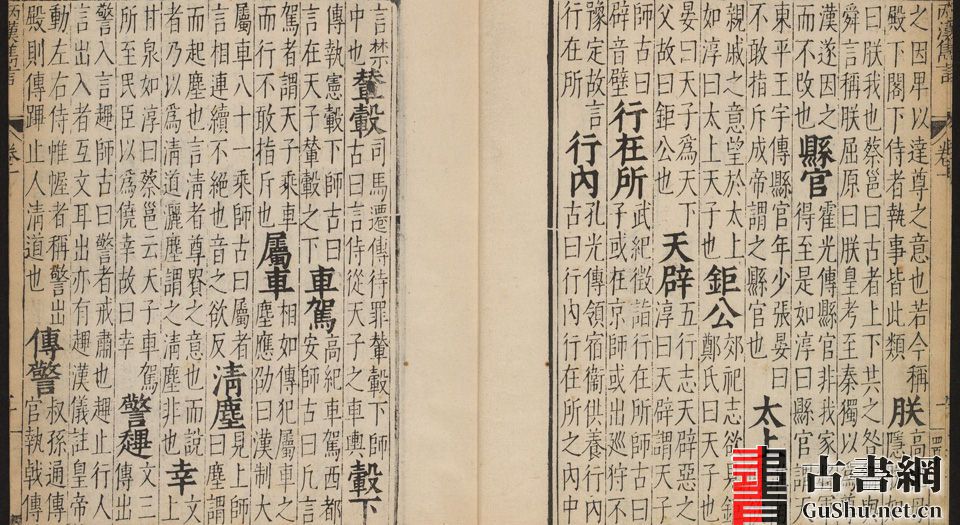 之因卑以達尊之意也若今稱
殿下閣下侍者執事皆此類 朕
曰朕我也蔡邕曰古者上下共之咎
舜言稱朕屈原曰朕皇考至秦獨以
漢遂因之 縣官 霍光傳縣官非我家
而不改也 得至是如淳曰縣官
東平王宇傳縣官年少張晏曰
不敢指斥成帝謂之縣官也 太上
親戚之意望於太上 鉅公 郊祀志欲見鉅
如淳曰太上天子也 鄭氏曰天子也
晏曰天子爲天下 天辟 五行志天辟惡之
父故曰鉅公也 淳曰天辟謂天子
師古曰 行在所 武紀徵詣行在所師古曰
辟音壁 子或在京師或出巡狩不
豫定故言 行內 孔光傳領宿衞供養行內
行在所 古曰行內行在所之內中
言禁 輦轂 司馬遷傳待罪輦轂下師
中也 古曰言侍從天子之車輿 轂下
傳執憲轂下師古曰 車駕 高紀車駕西都
言在天子輦轂之下 安師古曰凡言
駕者謂天子乘車 屬車 相如傳犯屬車之
而行不敢指斥也 塵應劭曰漢制大
屬車八十一乘師古曰屬者 清塵 見上師
言相連續不絕也音之欲反 古曰塵謂
而起塵也言清者尊之意也而說 幸 文
者乃以爲清道灑塵謂之清塵非也 上
甘泉如淳曰蔡邕云天子車駕 警趯 文三
所至民臣以爲僥幸故曰幸 傳出
警入言趯師古曰警者戒肅也趯止行人
言出入者互文耳出亦有趯漢儀註皇帝
動左右侍帷幄者稱警出 傳警 叔孫通傳
殿則傳蹕止人清道也 官執戟傳
古書網
GuShu.net.cn